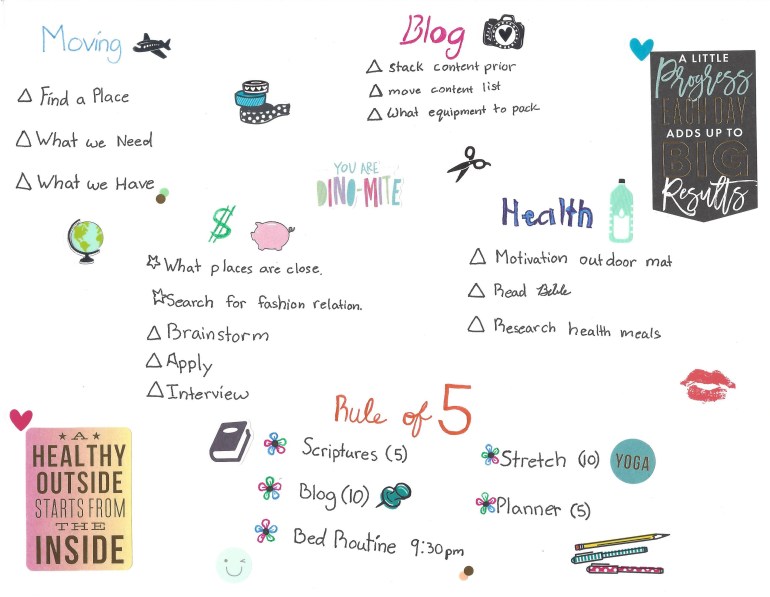 Moving
Find a Place
What we Need
What we Have
Blog
stack content prior
move content list
What equipment to pack
A LITTLE
Progress
EACH DAY
ADDS UP TO
BIG
Results
YOU ARE
DINO-MITE
$
What places are close.
Search for fashion relation.
Brainstorm
Apply
Interview
Health
Motivation outdoor mat
Read Bible
Research health meals
Rule of 5
Scriptures (5)
Blog (10)
Bed Routine 9:30pm
Stretch (10)
YOGA
Planner (5)
A
HEALTHY
OUTSIDE
STARTS FROM
THE
INSIDE